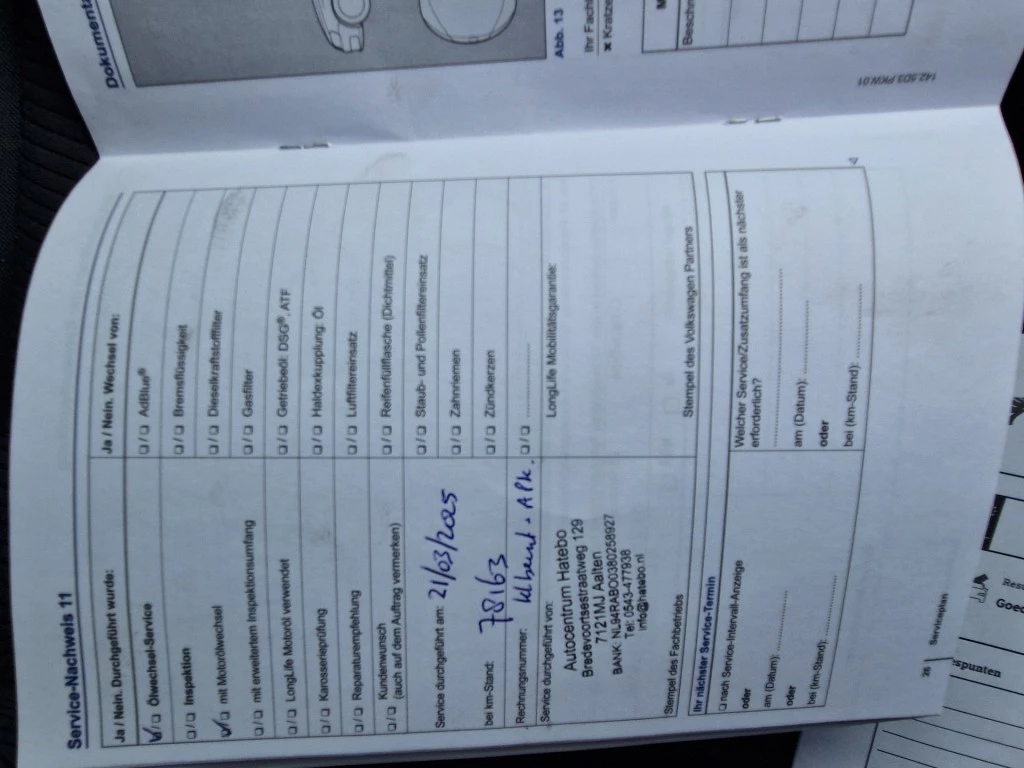 Service-Nachweis 11
Ja / Nein. Durchgeführt wurde:
Ja / Nein. Wechsel von:
Ölwechsel-Service
AdBlue®
Inspektion
Bremsflüssigkeit
mit Motorölwechsel
Dieselkraftstofffilter
mit erweitertem Inspektionsumfang
Gasfilter
LongLife Motoröl verwendet
Getriebeöl: DSG®, ATF
Karosserieprüfung
Haldexkupplung: Öl
Reparaturempfehlung
Luftfiltereinsatz
Kundenwunsch
(auch auf dem Auftrag vermerken)
Reifenfüllflasche (Dichtmittel)
Service durchgeführt am: 21/03/2025
Staub- und Pollenfiltereinsatz
Zahnriemen
bei km-Stand: 78163
Zündkerzen
Rechnungsnummer: kl beurt + APK.
Service durchgeführt von:
Autocentrum Hatebo
Bredevoortsestraatweg 129
7121MJ Aalten
BANK: NL94RABO0380258927
Tel: 0543-477938
info@hatebo.nl
Stempel des Fachbetriebs
LongLife Mobilitätsgarantie:
Stempel des Volkswagen Partners
Ihr nächster Service-Termin
nach Service-Intervall-Anzeige
oder
am (Datum):
oder
bei (km-Stand):
Welcher Service/Zusatzumfang ist als nächster
erforderlich?
am (Datum):
oder
bei (km-Stand):
26 Serviceplan
Dokumenta
Abb. 13
Ihr Fach
Kratze
M
Beschr
142.5D3.PKW.01
Res
Goed
spunten